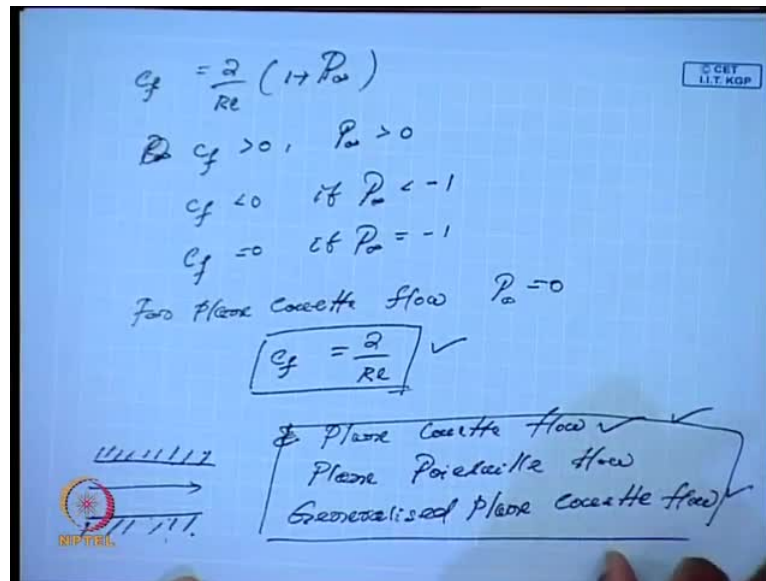 c_f = 2/Re (1+P_∞)
© CET
I.I.T. KGP
c_f >0, P_∞ >0
c_f <0 if P_∞ < -1
c_f =0 if P_∞ = -1
For plane couette flow P_∞ =0
c_f = 2/Re ✓
Plane couette flow ✓ ✓
Plane Poiseuille flow
Generalised plane couette flow ✓
NPTEL